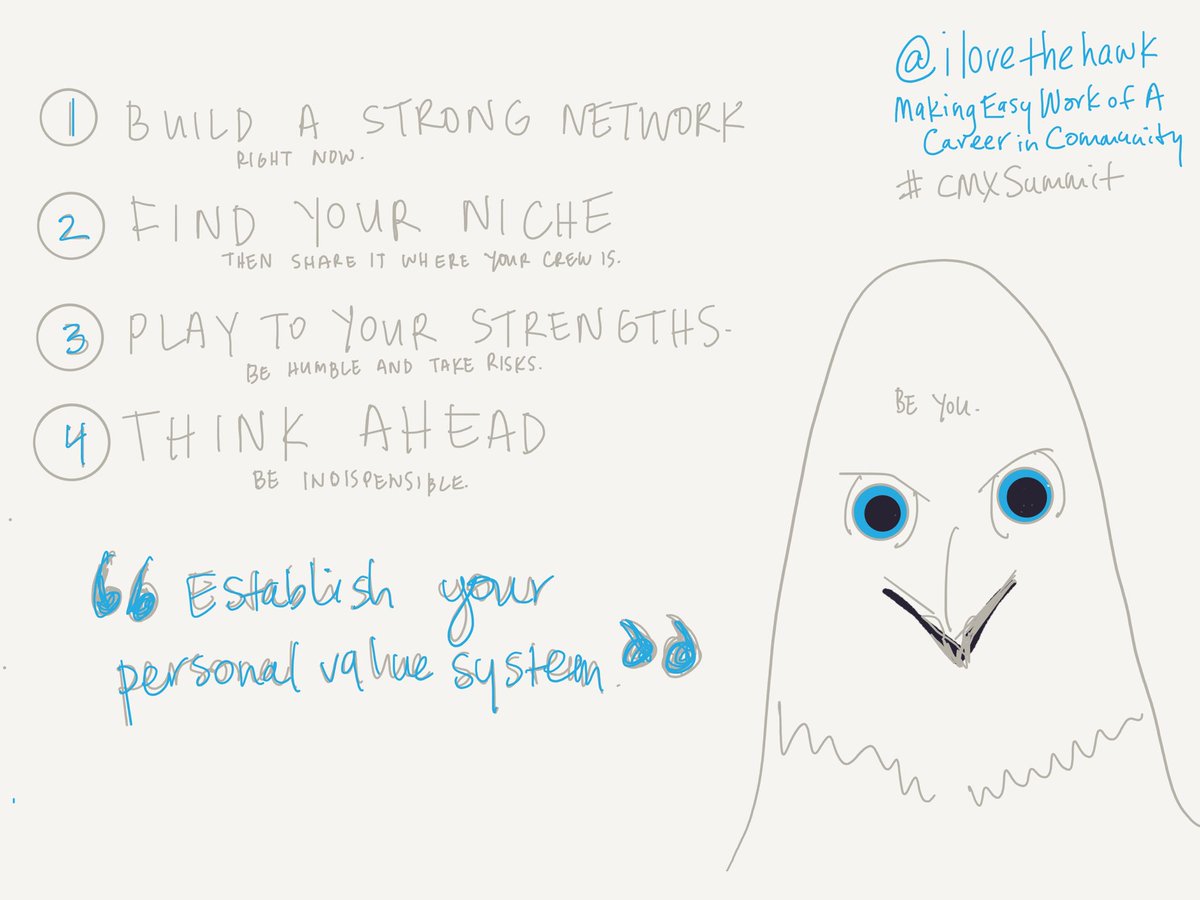 1 BUILD A STRONG NETWORK
RIGHT NOW.
2 FIND YOUR NICHE
THEN SHARE IT WHERE YOUR CREW IS.
3 PLAY TO YOUR STRENGTHS.
BE HUMBLE AND TAKE RISKS.
4 THINK AHEAD
BE INDISPENSIBLE.
“Establish your
personal value system.”
@ilovethehawk
Making Easy Work of A
Career in Community
# CMXSummit
BE YOU.